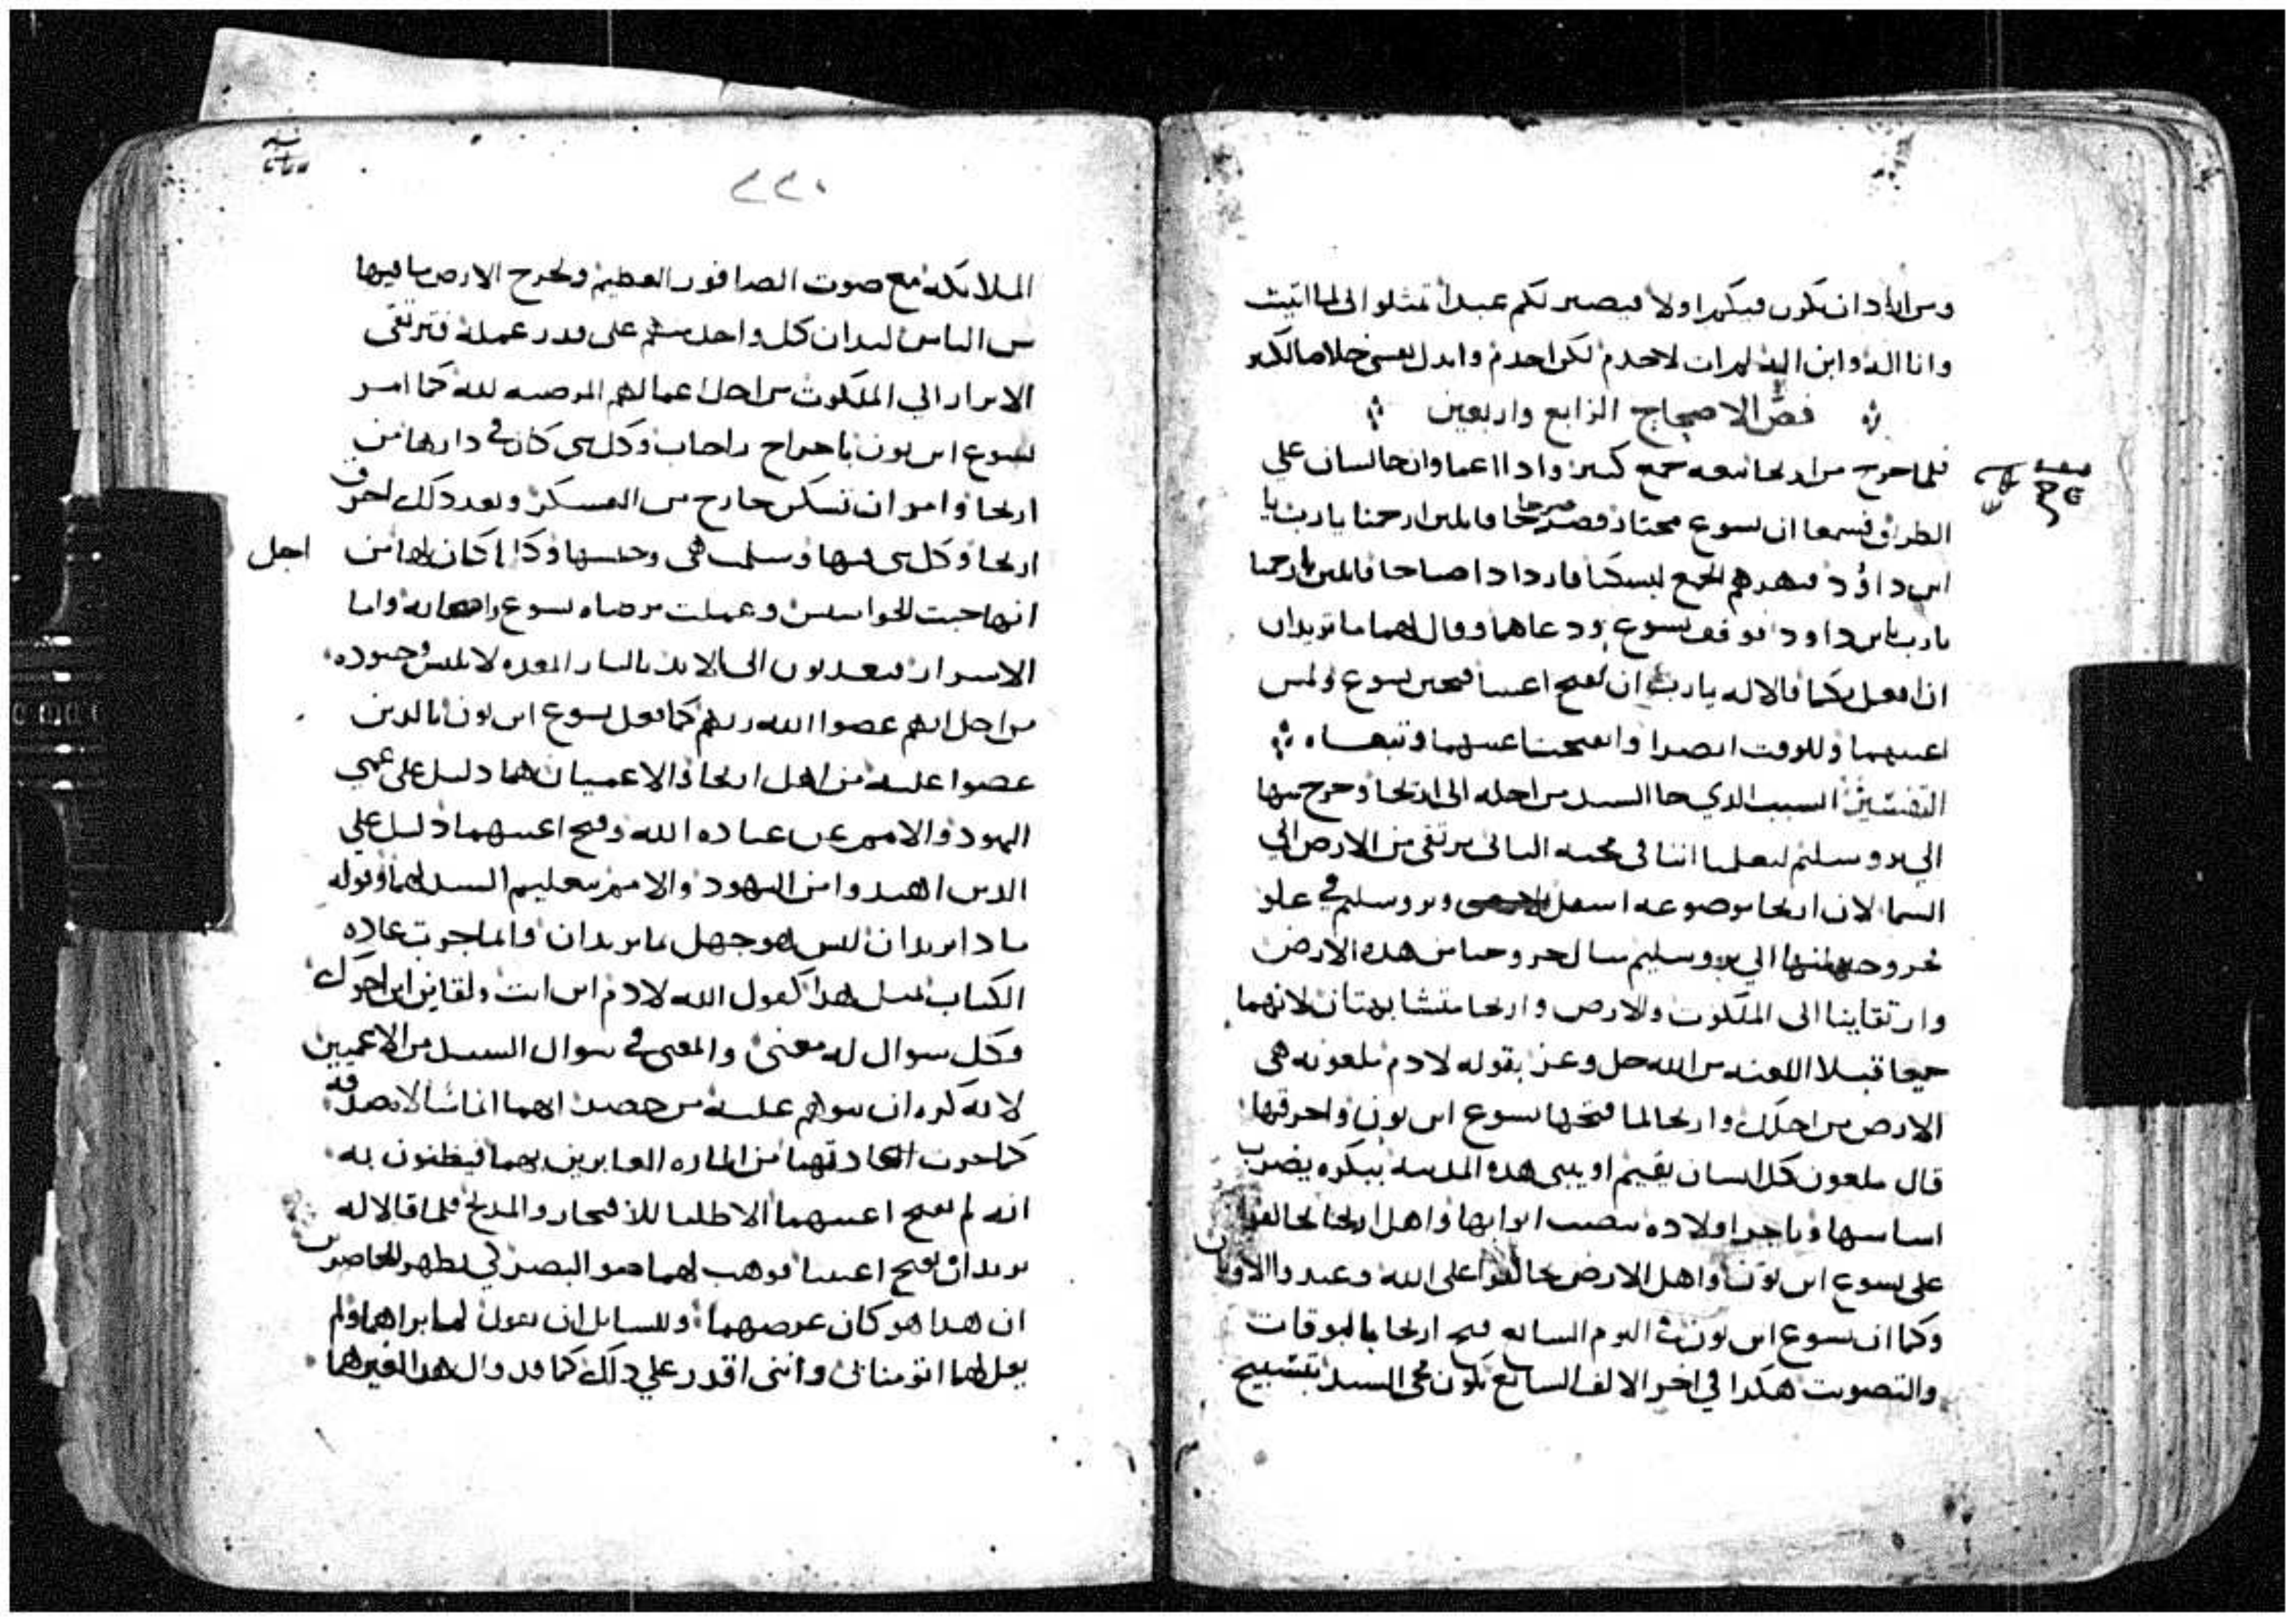 ومن اراد ان يكون فيكم اولا فيصير لكم عبدا تمثلوا الي لما اتيت
وانا اله وابن اله لم ات لاخدم لكن اخدم وابدل نفسي خلاصا لكثير
فص الاصحاح الرابع واربعين
فلما خرج من اريحا تبعه جمع كبير واذا اعما وان جالسان علي
الطريق فسمعا ان يسوع مجتاز فصرخا قايلين ارحمنا يا رب يا
ابن داؤد فنهرهم الجمع ليسكتا فازدادا صياحا قايلين ارحمنا
يا رب يا بن داود فوقف يسوع ودعاهما وقال لهما ما تريدان
ان افعل بكما قالا له يا رب ان تفتح اعيننا فتحنن يسوع ولمس
اعينهما وللوقت ابصرا وانفتحت اعينهما وتبعاه
التفسير السبب الذي جا السيد من اجله الى اريحا وخرج منها
الي يروسليم ليعلمنا اننا في مجيه الثاني نرتقي من الارض الي
السما لان اريحا موضوعه اسفل ويروسليم في علو
خروجهم منها الي يروسليم مثال خروجنا من هذه الارض
وارتقاينا الى الملكوت والارض واريحا متشابهتان لانهما
جميعا قبلا اللعنه من الله جل وعز بقوله لادم ملعونه هي
الارض من اجلك واريحا لما فتحها يسوع ابن نون واحرقها
قال ملعون كل انسان يقيم او يبني هذه المدينه ببكره يضرب
اساسها وباخر اولاده ينصب ابوابها واهل اريحا خالفوا
على يسوع ابن نون واهل الارض خالفوا على الله وعبدوا الاوثان
وكما ان يسوع ابن نون في اليوم السابع فتح اريحا بالبوقات
والتصويت هكذا في اخر الالف السابع يكون مجي السيد بتسبيح
٢٢٠
الملايكه مع صوت الصافور العظيم وتخرج الارض ما فيها
من الناس ليدان كل واحد منهم على قدر عمله فترتقي
الابرار الي الملكوت من اجل اعمالهم المرضيه لله كما امر
يسوع ابن نون باخراج راحاب وكل شي كان في دارها من
اريحا وامر ان تسكن خارج من العسكر وبعد ذلك احرق
اريحا وكل شي فيها وسلمت هي وجنسها وكذا كان لها من اجل
انها خبت الجواسيس وعملت مرضاه يسوع واصحابه واما
الاشرار فيعذبون الى الابد بالنار المعده لابليس وجنوده
من اجل انهم عصوا الله ربهم كما فعل يسوع ابن نون بالذين
عصوا عليه من اهل اريحا والاعميان هما دليل على عمي
اليهود والامم عن عباده الله وفتح اعينهما دليل علي
الذين اهتدوا من اليهود والامم بتعليم السيد لهما وقوله
ماذا تريدان ليس هو جهل بما يريدان وانما جرت عاده
الكتاب بمثل هذا كقول الله لادم اين انت ولقاين اين اخوك
وكل سوال له معنى والمعنى في سوال السيد من الاعميين
لانه كره ان يتوهم عليه من حضر انهما انما سالا صدقه
كما جرت العاده منهما من الماره العابرين بهما فيظنون به
انه لم يفتح اعينهما الا طلبا للافتخار والمديح فلما قالا له
نريد ان تفتح اعيننا فوهب لهما هو البصر لكي يظهر للحاضرين
ان هذا هو كان غرضهما وللسايل ان يقول لما براهما ولم
يقل لهما اتومنا بي وانني اقدر علي ذلك كما قد قال هذا لغيرهما